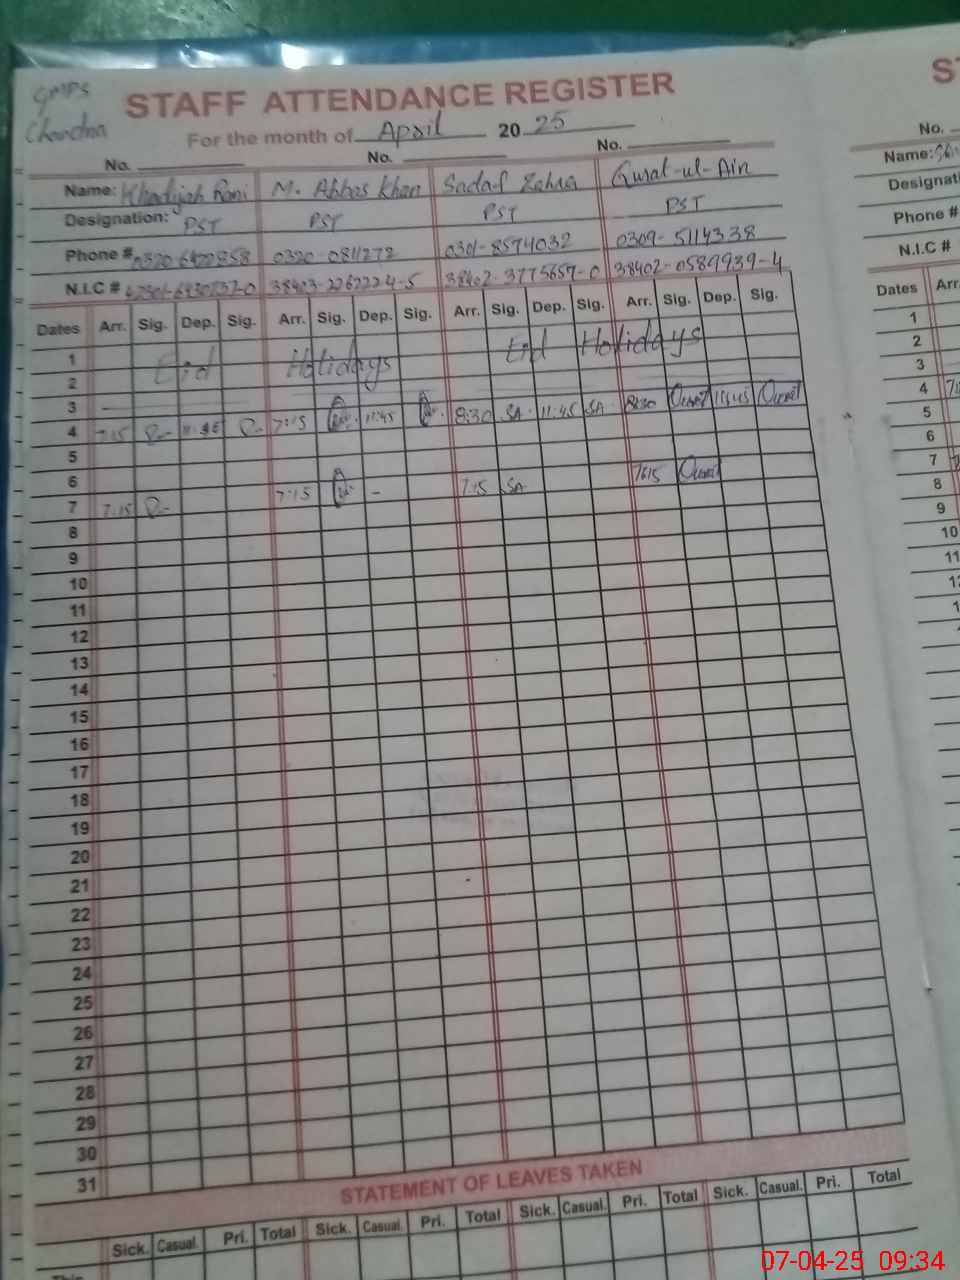 GMPS
Chandna
STAFF ATTENDANCE REGISTER
For the month of April 2025
No. No. No.
Name: Khadijah Rani M. Abbas Khan Sadaf Zahra Qurat-ul-Ain
Designation: PST PST PST PST
Phone # 0320-0811272 0301-8574032 0309-5114338
N.I.C # 38403-2262224-5 38402-3775657-0 38402-0589939-4
Dates Arr. Sig. Dep. Sig. Arr. Sig. Dep. Sig. Arr. Sig. Dep. Sig. Arr. Sig. Dep. Sig.
1 Eid Holidays Eid Holidays
2
3
4 7:15 7:15 11:45 8:30 SA 11:45 SA 8:30 Qurat 11:45 Qurat
5
6
7 7:15 7:15 - 7:15 SA 7:15 Qurat
8
9
10
11
12
13
14
15
16
17
18
19
20
21
22
23
24
25
26
27
28
29
30
31
STATEMENT OF LEAVES TAKEN
Sick. Casual. Pri. Total Sick. Casual. Pri. Total Sick. Casual. Pri. Total Sick. Casual. Pri. Total
This
No.
Name:
Designati
Phone #
N.I.C #
Dates Arr.
1
2
3
4
5
6
7
8
9
10
11
07-04-25 09:34